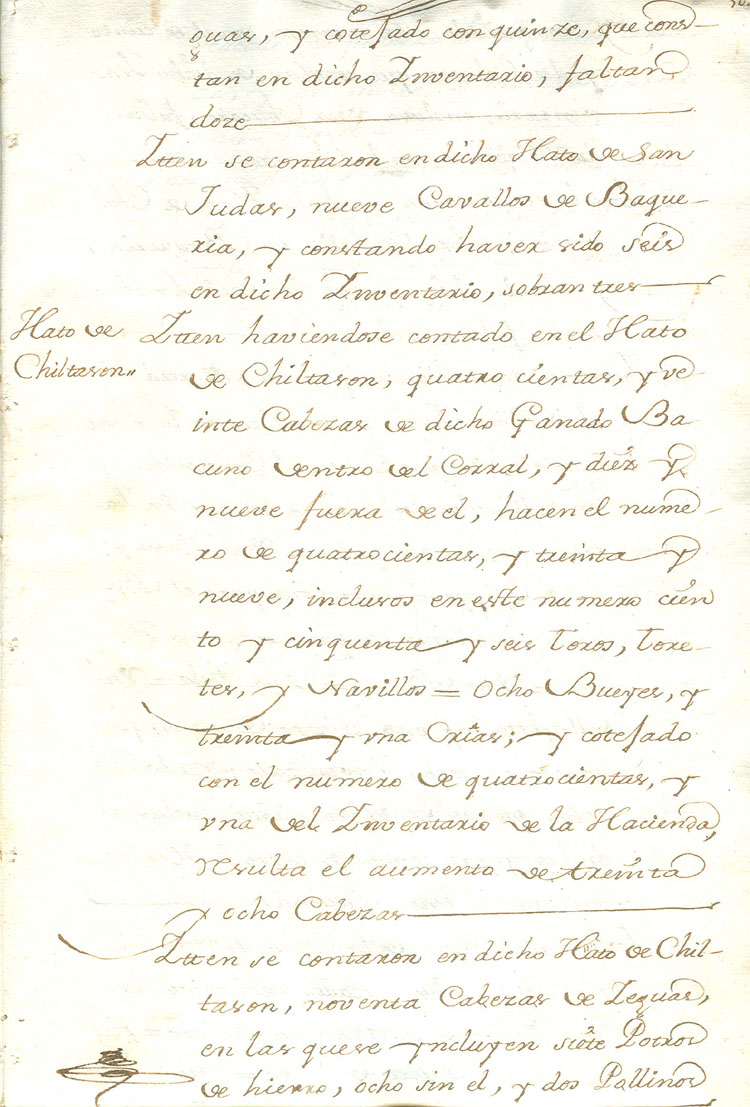 guas, y cotejado con quinze, que cons-
tan en dicho Inventario, faltan
doze
Itten se contaron en dicho Hato de San
Judas, nueve Cavallos de Baque-
ria, y constando haver sido seis
en dicho Inventario, sobran tres
Hato de
Chiltason,,
Itten haviendose contado en el Hato
de Chiltason, quatro cientas, y ve-
inte Cabezas de dicho Ganado Ba
cuno dentro del Corral, y diéz y
nueve fuera de el, hacen el nume-
ro de quatrocientas, y treinta y
nueve, inclusos en este numero cien
to y cinquenta y seis toros, tore-
tes, y Navillos = Ocho Bueyes, y
treinta y vna Crias; y cotejado
con el numero de quatrocientas, y
vna del Inventario de la Hacienda,
resulta el aumento de treinta
y ocho Cabezas
Itten se contaron en dicho Hato de Chil-
tason, noventa Cabezas de Yeguas,
en las que se yncluyen siete Potros
de hierro, ocho sin el, y dos Pollinos